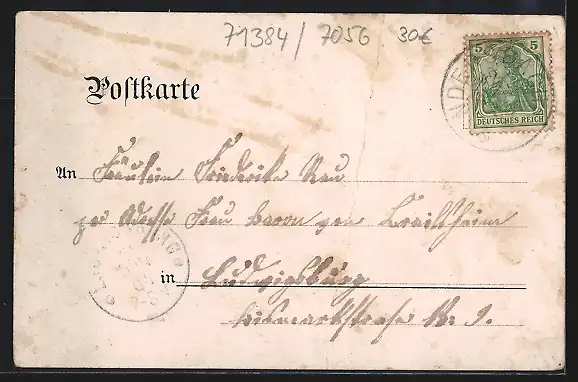 71384 / 7056 30€
5 5
DEUTSCHES REICH
Postkarte
An Fräulein Friederike Rau
per Adresse Frau Baron von Crailsheim
in Ludwigsburg
Bismarckstrasse Nr. 9.